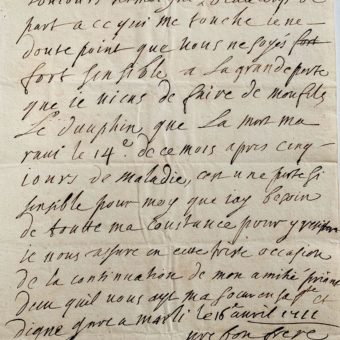 part a ce qui me touche ie ne
doute point que vous ne soyés fort
fort sensible a la grande perte
que ie viens de faire de mon fils
Le dauphin que La mort m'a
ravi le 14e. de ce mois apres cinq
iours de maladie, c'est une perte si
sensible pour moy que i'ay besoin
de toutte ma constance pour y
ie vous assure en cette triste occasion
de la continuation de mon amitié priant
dieu qu'il vous ayt en sa garde et
digne a marli le 16 avril 1711
vre bon frere